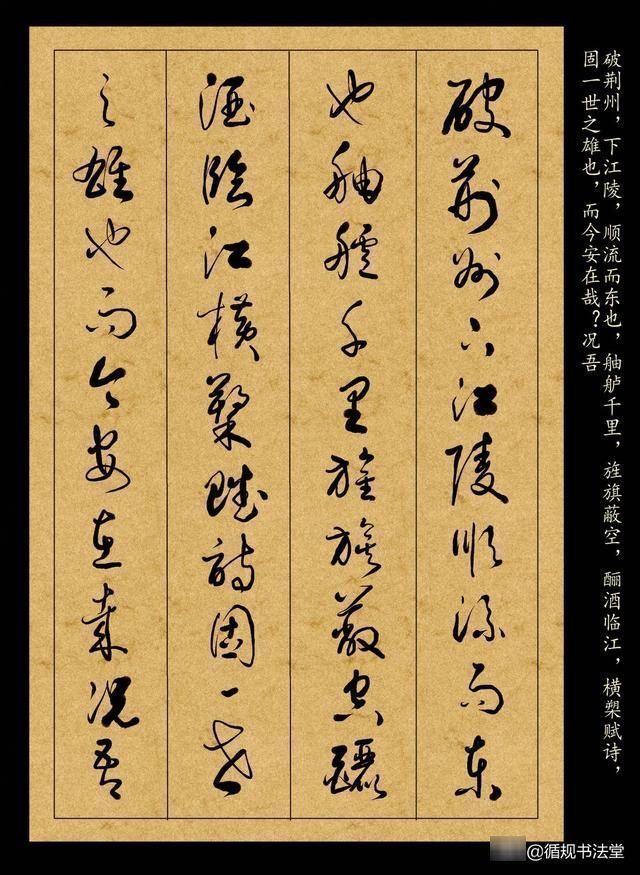 破荆州，下江陵，顺流而东也，舳舻千里，旌旗蔽空，酾酒临江，横槊赋诗，
固一世之雄也，而今安在哉？况吾
破荆州下江陵順流而東
也舳艫千里旌旗蔽空釃
酒臨江橫槊賦詩固一世
之雄也而今安在哉况吾
@循规书法堂